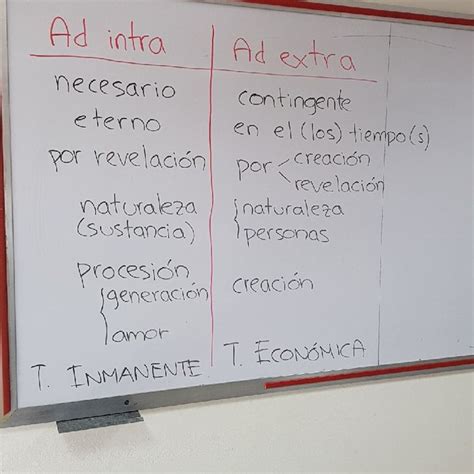 Ad intra
Ad extra
necesario
contingente
eterno
en el (los) tiempo(s)
por revelación
por creación
revelación
naturaleza
(sustancia)
naturaleza
personas
procesión
generación
amor
creación
T. INMANENTE
T. ECONÓMICA